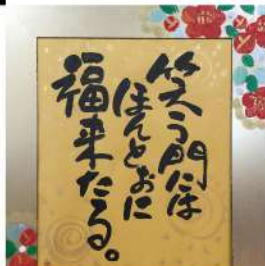 笑う門には
ほんとおに
福来たる。